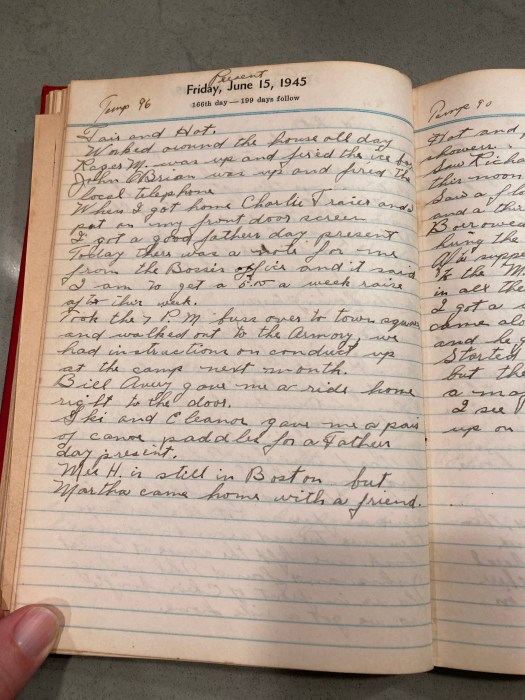 Present
Friday, June 15, 1945
166th day — 199 days follow
Temp 96
Fair and Hot.
Worked around the house all day
Roger M. was up and fixed the ice box
John O Brian was up and fixed the
local telephone
When I got home Charlie Traier and I
put on my front door screen
I got a good father day present
Today there was a note for me
from the Bosses office and it said
I am to get a 5.00 a week raise
after this week.
Took the 7 P.M. buss over to town square
and walked out to the Armory, we
had instructions on conduct up
at the camp next month.
Bill Avery gave me a ride home
right to the door.
Ski and Eleanor gave me a pair
of canoe paddles for a Father
day present.
Mrs H. is still in Boston but
Martha came home with a friend.
Temp 90
Hot and
showers.
Saw Richa
this noon
Saw a fl
and a thi
Borrowed
hung the
After suppe
to the "M
in all the
I got a
came al
and he g
Started
but the
a ma
I see
up on